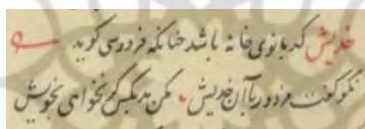 خدیش کدبانوی خانه باشد چنانکه فردوسی گوید
نکو گفت مزدور با آن خدیش مکن بد بکس گر نخواهی بخویش